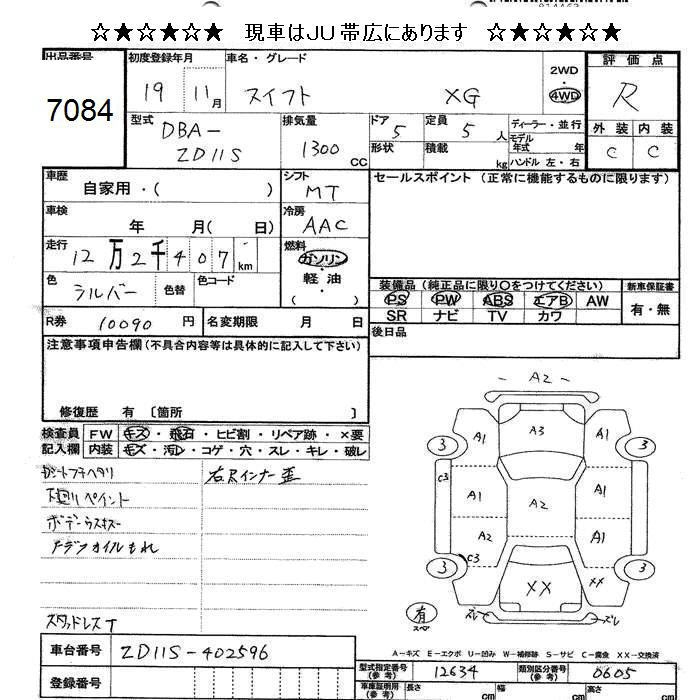 ☆★☆★☆★ 現車はJU帯広にあります ☆★☆★☆★
出品番号 7084
初度登録年月 19 11月
車名・グレード スイフト XG
2WD・4WD
評価点 R
外装 C 内装 C
型式 DBA-ZD11S
排気量 1300 CC
ドア 5
形状
定員 5人
積載 kg
ディーラー・並行
モデル年式 年
ハンドル 左・右
車歴 自家用・( )
シフト MT
セールスポイント (正常に機能するものに限ります)
車検 年 月( 日)
冷房 AAC
走行 12万2千407km
燃料 ガソリン・軽油 ( )
色 シルバー 色替 色コード
装備品 (純正品に限り○をつけてください)
PS PW ABS エアB AW
SR ナビ TV カワ
新車保証書 有・無
R券 10090円 名変期限 月 日
後日品
注意事項申告欄(不具合内容等は具体的に記入して下さい)
修復歴 有 〔箇所 〕
検査員記入欄
FW キズ・飛石・ヒビ割・リペア跡・×要
内装 キズ・汚レ・コゲ・穴・スレ・キレ・破レ
右Rインナー歪
下廻りペイント
ボデーウスキズ
アデフオイルもれ
スタッドレスT
- A2 -
A1 A3 A1
3 3
C3 A1 A2 A1
A2 C3 A1
3 XX XX 3
有 スペア
ズレ ズレ
A-キズ E-エクボ U-凹み W-補修跡 S-サビ C-腐食 XX-交換済
車台番号 ZD11S-402596
登録番号
型式指定番号(参考) 12634
類別区分番号(参考) 0605
車庫証明用(参考) 長さ cm 幅 cm 高さ cm